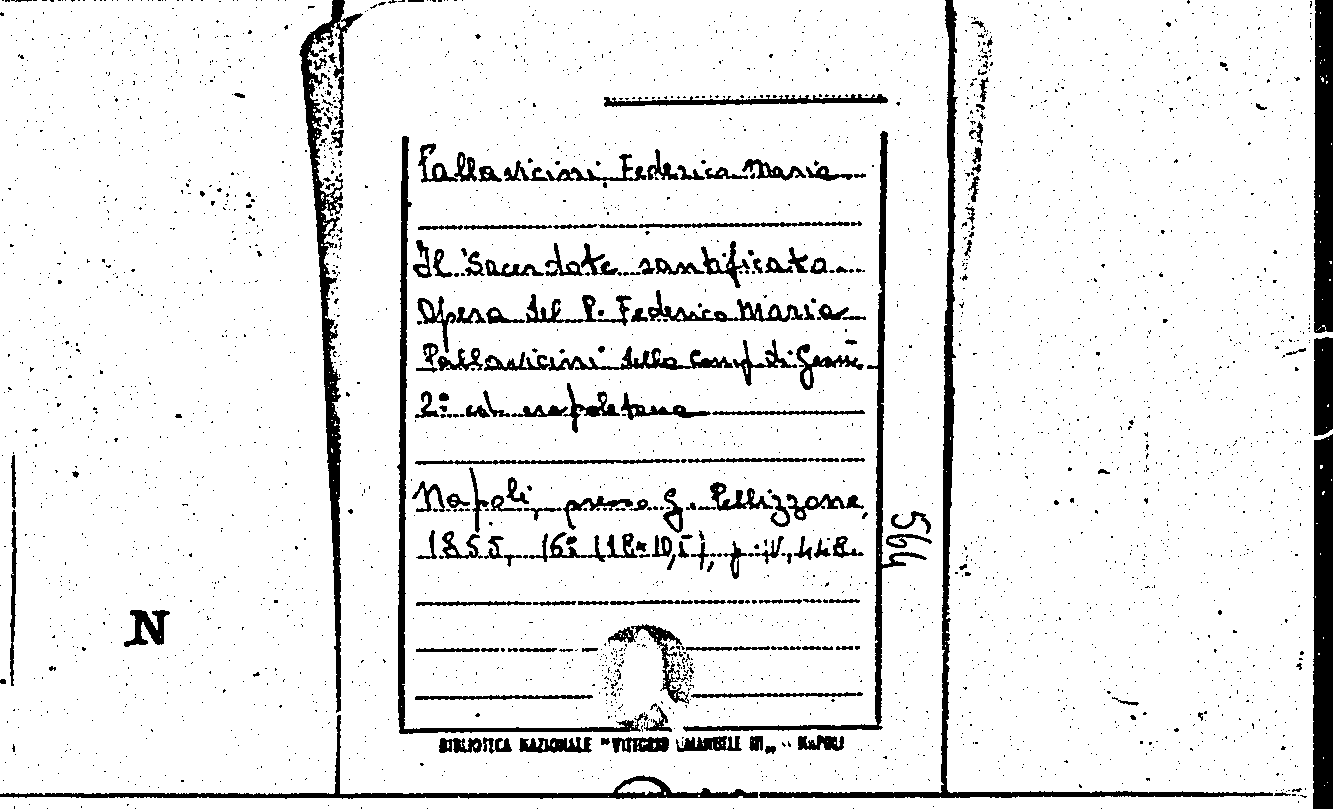 Pallavicini, Federico Maria
Il Sacerdote santificato
Opera del P. Federico Maria
Pallavicini della Comp. di Gesù.
2ª ed. napoletana
Napoli, presso G. Pellizzone,
1855, 16º (18×10,5), p. IV, 448.
564
N
BIBLIOTECA NAZIONALE "VITTORIO EMANUELE III„ - NAPOLI